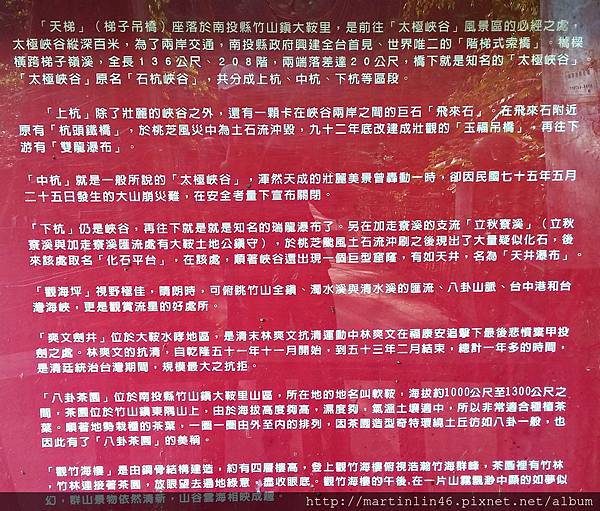 「天梯」（梯子吊橋）座落於南投縣竹山鎮大鞍里，是前往「太極峽谷」風景區的必經之處，
太極峽谷縱深百米，為了兩岸交通，南投縣政府興建全台首見、世界唯二的「階梯式索橋」。橋樑
橫跨梯子嶺溪，全長１３６公尺、２０８階，兩端落差達２０公尺，橋下就是知名的「太極峽谷」
「太極峽谷」原名「石杭峽谷」，共分成上杭、中杭、下杭等區段。
「上杭」除了壯麗的峽谷之外，還有一顆卡在峽谷兩岸之間的巨石「飛來石」。在飛來石附近
原有「杭頭鐵橋」，於桃芝風災中為土石流沖毀，九十二年底改建成壯觀的「玉福吊橋」，再往下
游有「雙龍瀑布」。
「中杭」就是一般所說的「太極峽谷」，渾然天成的壯麗美景曾轟動一時，卻因民國七十五年五月
二十五日發生的大山崩災難，在安全考量下宣布關閉。
「下杭」仍是峽谷，再往下就是就是知名的瑞龍瀑布了。另在加走寮溪的支流「立秋寮溪」（立秋
寮溪與加走寮溪匯流處有大鞍土地公鎮守），於桃芝颱風土石流沖刷之後現出了大量疑似化石，後
來該處取名「化石平台」，在該處，順著峽谷還出現一個巨型窟窿，有如天井，名為「天井瀑布」。
「觀海坪」視野極佳，晴朗時，可俯眺竹山全鎮、濁水溪與清水溪的匯流、八卦山脈、台中港和台
灣海峽，更是觀賞流里的好處所。
「爽文劍井」位於大鞍水哮地區，是清末林爽文抗清運動中林爽文在福康安追擊下最後悲憤棄甲投
劍之處。林爽文的抗清，自乾隆五十一年十一月開始，到五十三年二月結束，總計一年多的時間，
是清廷統治台灣期間，規模最大之抗拒。
「八卦茶園」位於南投縣竹山鎮大鞍里山區，所在地的地名叫軟鞍，海拔約1000公尺至1300公尺之
間，茶園位於竹山鎮東隅山上，由於海拔高度夠高，濕度夠，氣溫土壤適中，所以非常適合種植茶
葉。順着地勢栽種的茶葉，一圈一圈由外至內的排列，因茶園造型奇特環繞土丘彷如八卦一般，也
因此有了「八卦茶園」的美稱。
「觀竹海樓」是由鋼骨結構建造，約有四層樓高，登上觀竹海樓俯視浩瀚竹海群峰，茶園裡有竹林
，竹林連接著茶園，放眼望去遍地綠意，盡收眼底。觀竹海樓的午後，在一片山霧飄渺中顯的如夢似
幻，群山景物依然清新，山谷雲海相映成趣。
http://martinlin46.pixnet.net/album